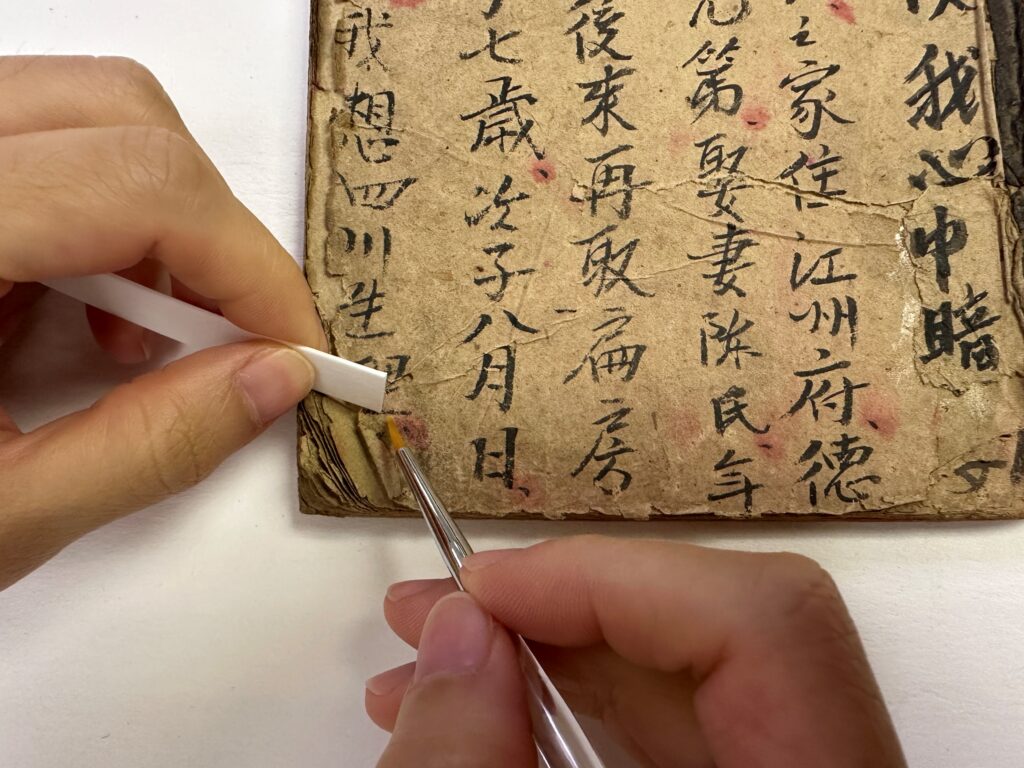 我心中暗
之家住江州府德
兄第娶妻陈民年
後來再取扁房
七歲次子八月日
我想四川生